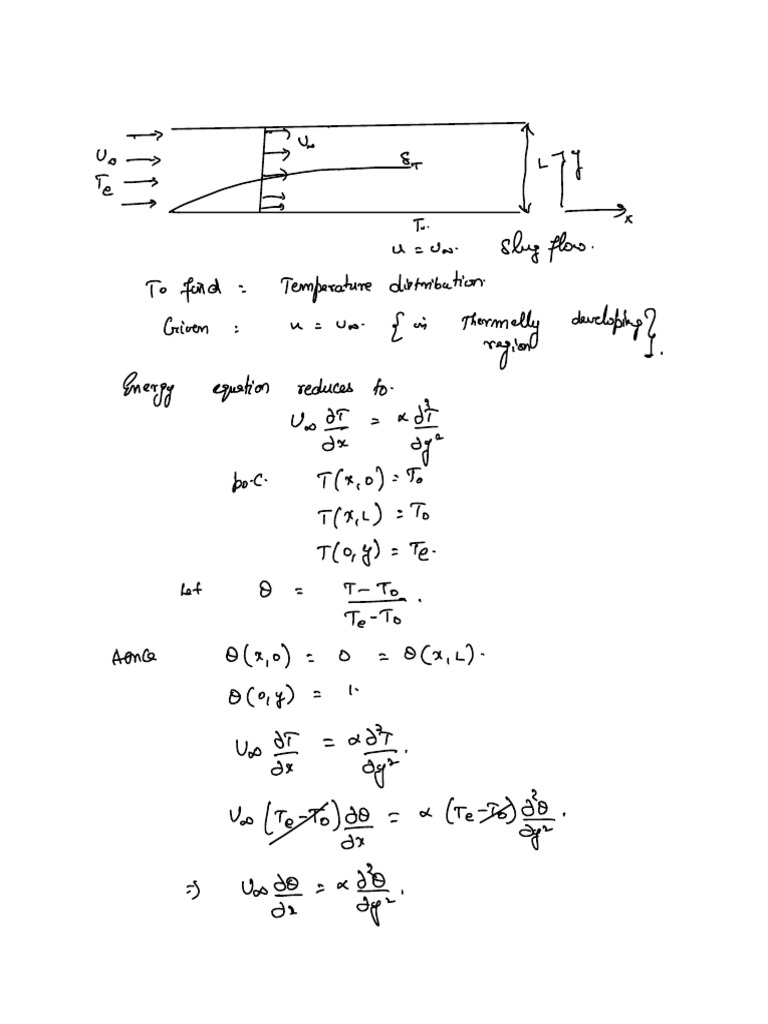 U∞
T_e
U∞
δ_T
L
y
x
T₀
u = U∞. Slug flow.
To find : Temperature distribution
Given : u = U∞. { in Thermally developing region }.
Energy equation reduces to.
U∞ ∂T/∂x = α ∂²T/∂y²
b.c. T(x,0) = T₀
T(x,L) = T₀
T(0,y) = Te.
Let θ = (T-T₀)/(Te-T₀).
Hence θ(x,0) = 0 = θ(x,L).
θ(0,y) = 1.
U∞ ∂T/∂x = α ∂²T/∂y².
U∞ (Te-T₀) ∂θ/∂x = α (Te-T₀) ∂²θ/∂y².
⇒ U∞ ∂θ/∂x = α ∂²θ/∂y².